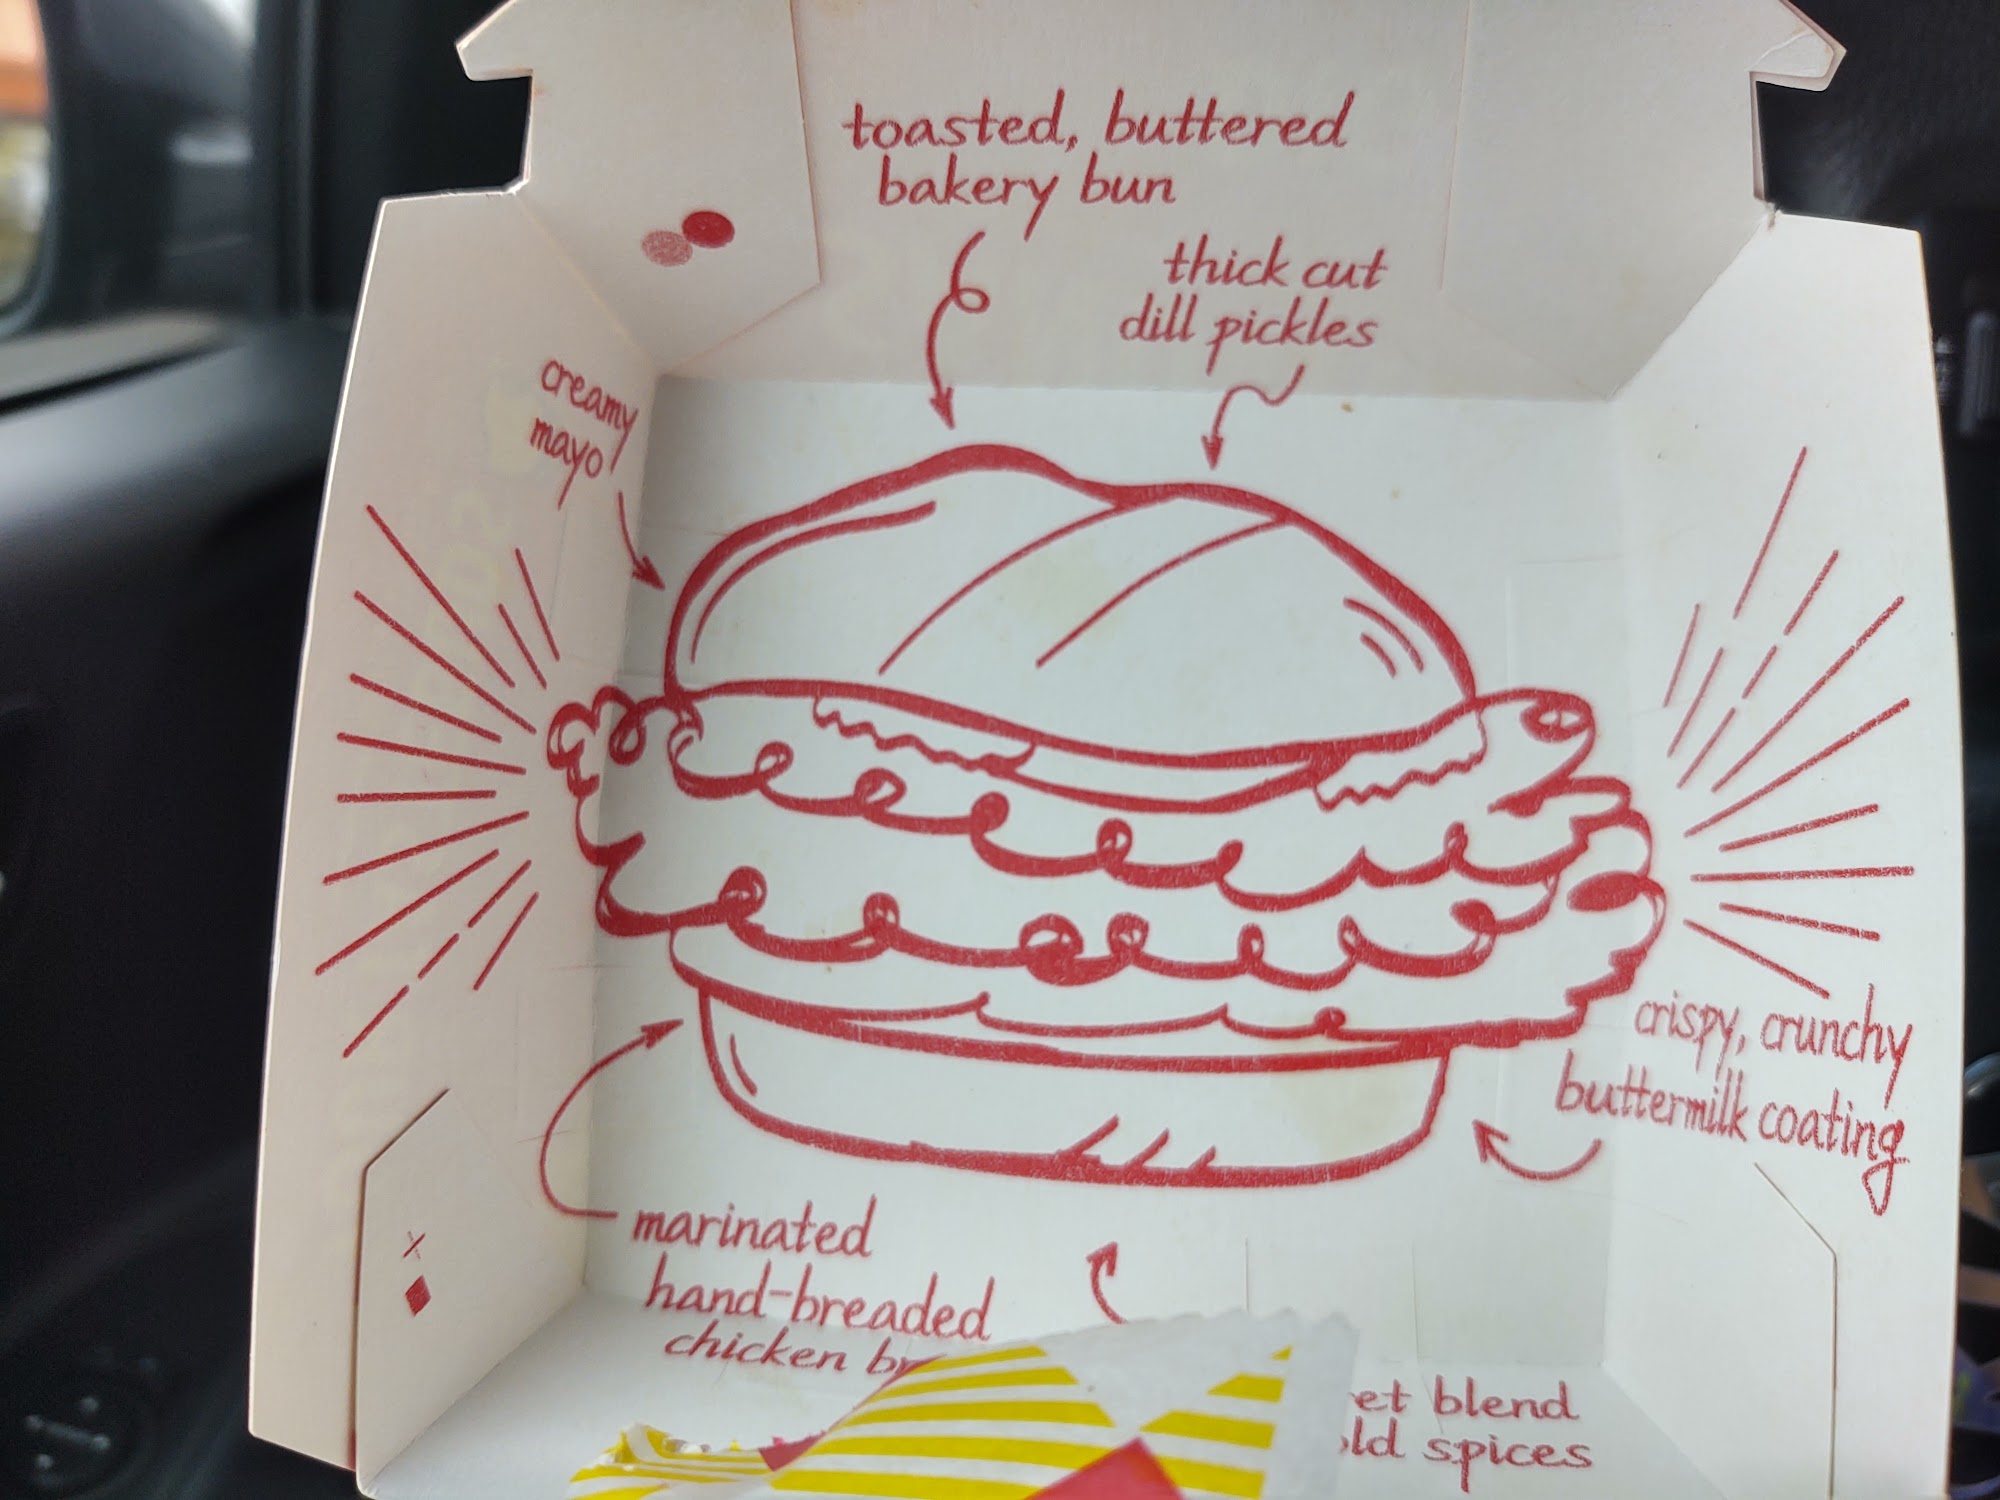 toasted, buttered
bakery bun
thick cut
dill pickles
creamy
mayo
crispy, crunchy
buttermilk coating
marinated
hand-breaded
chicken
blend
spices